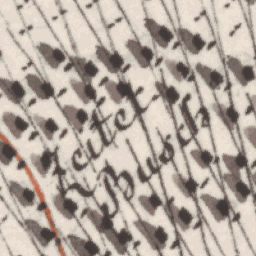 Reiter
Busch